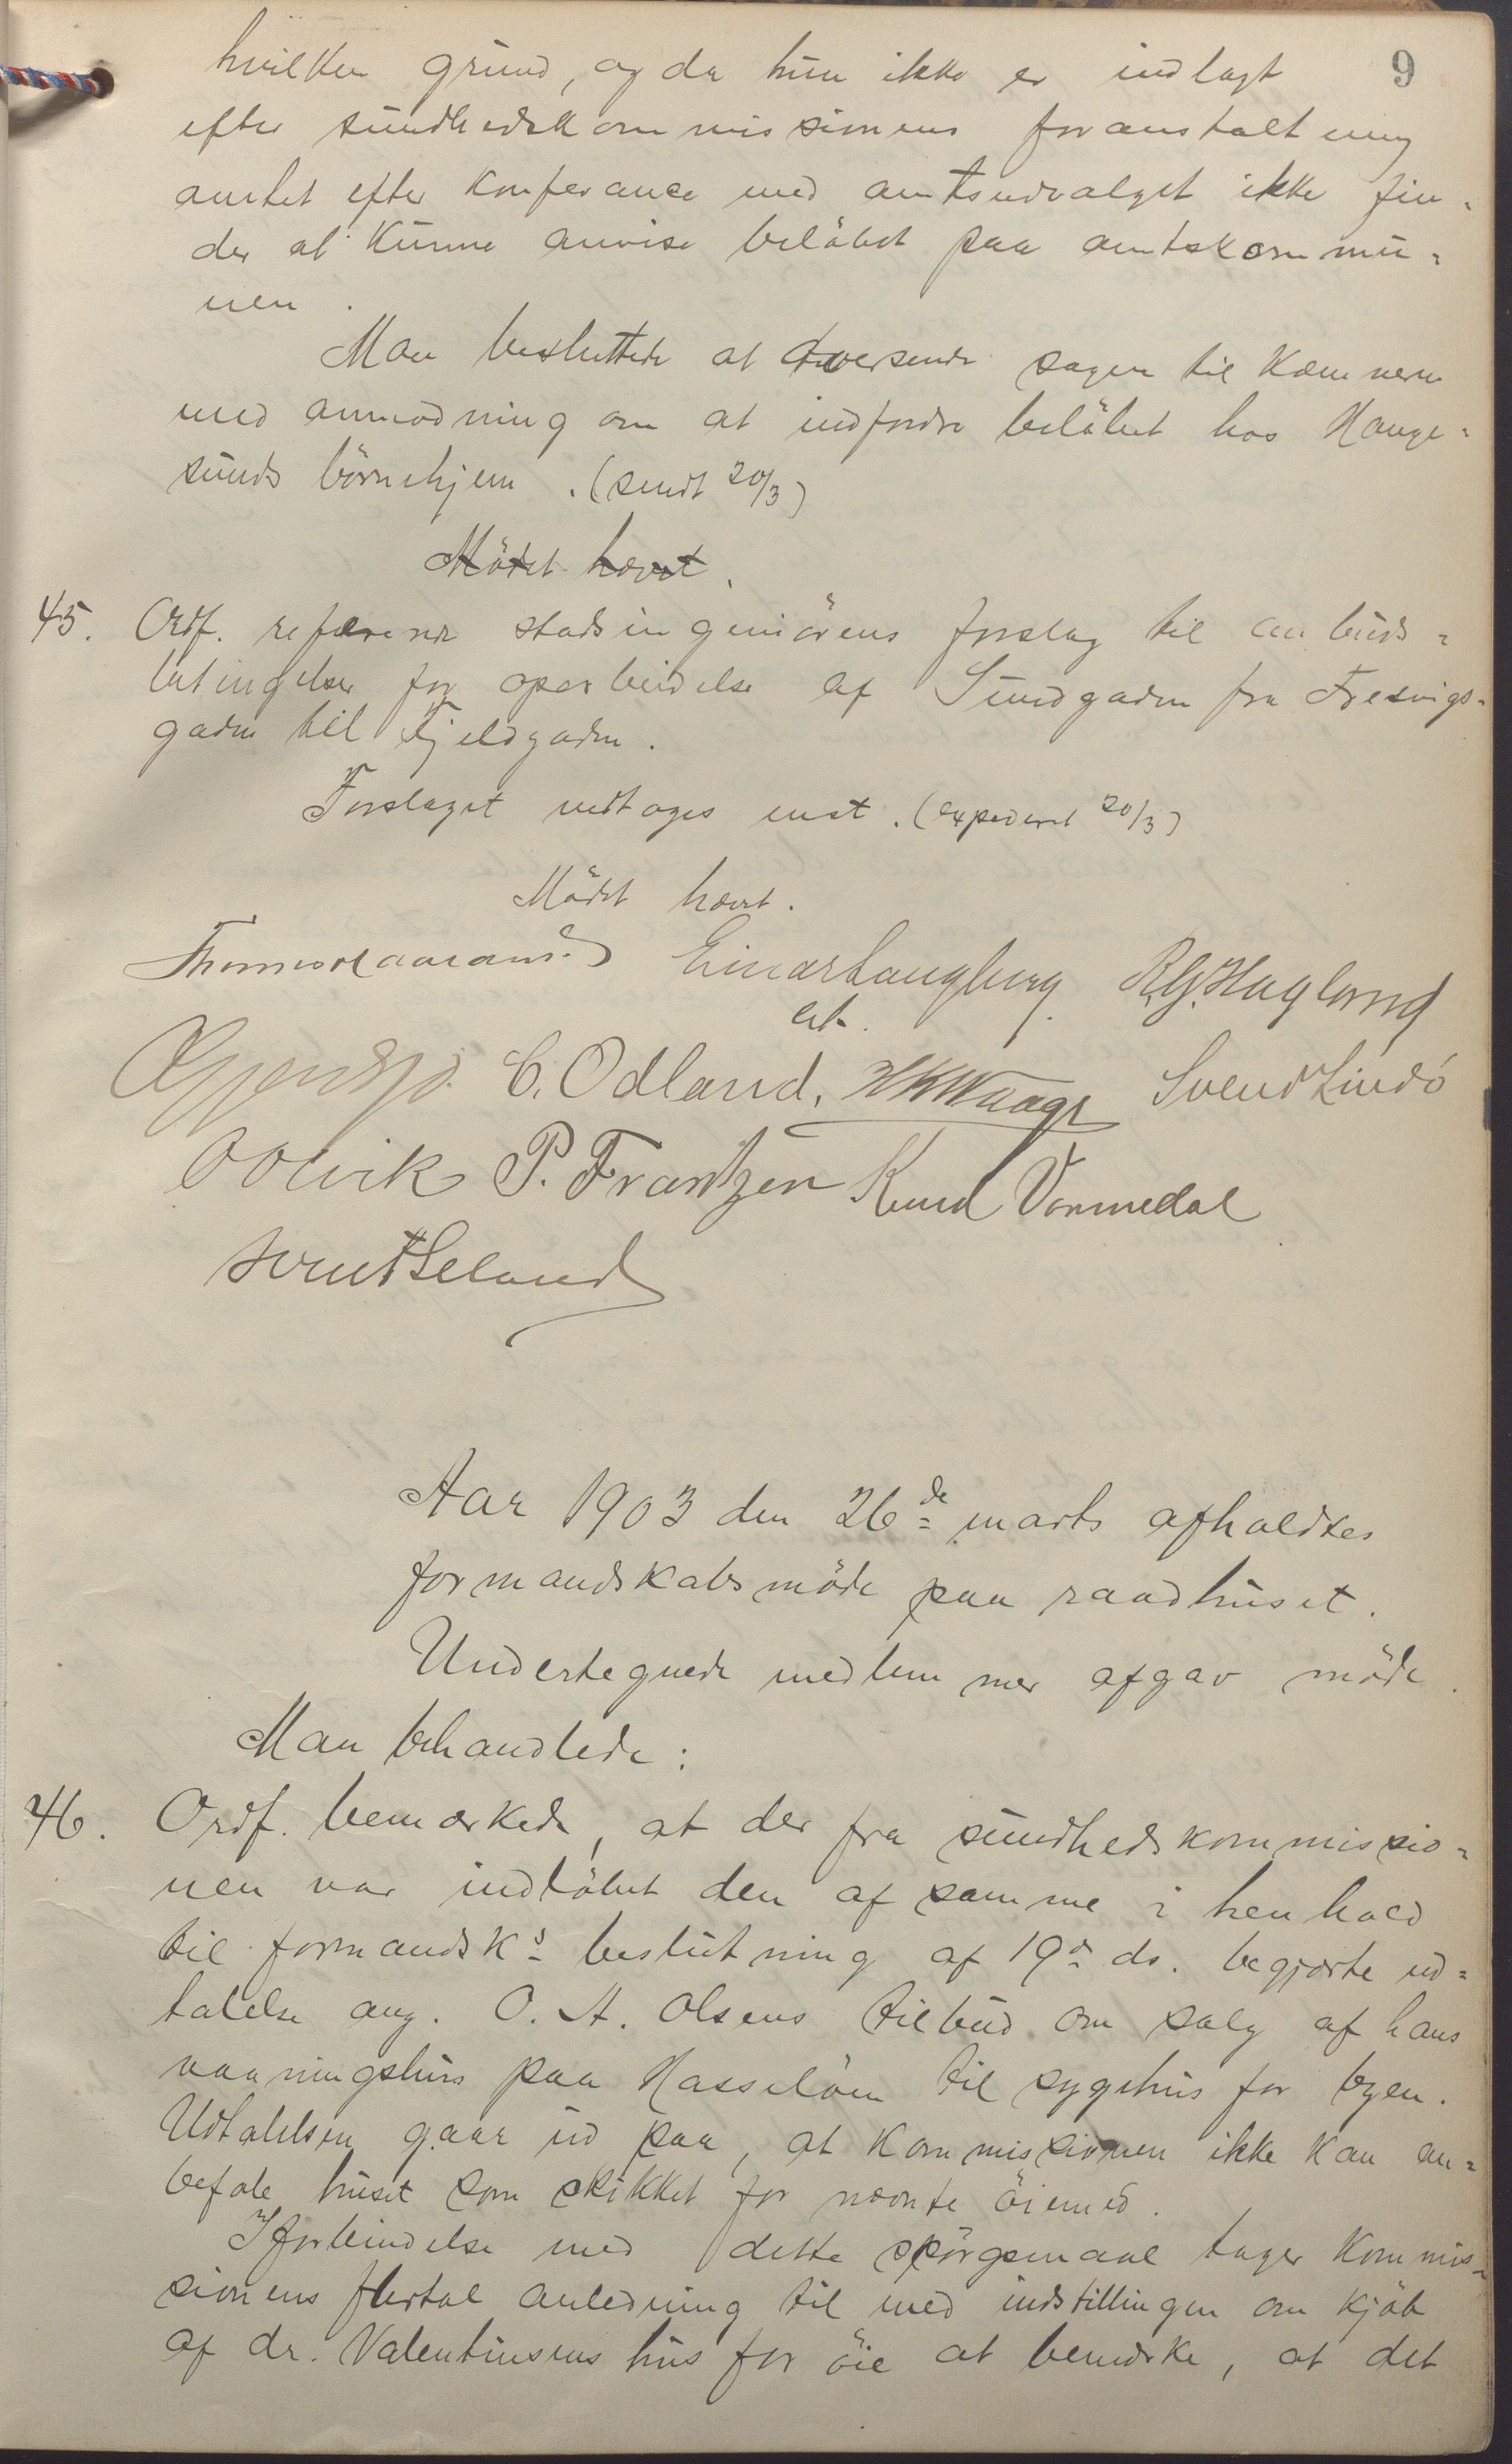 9
hvilken grund, og da hun ikke er indlagt
efter sundhedskommissionens foranstaltning
amtet efter konferance med amtsudvalget ikke fin-
der at kunne anvise belöbet paa amtskommu-
nen.
Man besluttede at oversende sagen til kæmneren
med anmodning om at indfordre belöbet hos Hauge-
sunds börnehjem. (sendt 20/3)
Mödet hævet.
45. Ordf. refererede stadsingeniörens forslag til anbuds-
betingelser for oparbeidelse af Sundgaden fra Fresvigs-
gaden til Fjeldgaden.
Forslaget vedtoges enst. (expederet 20/3)
Mödet hævet.
Einar Langberg R.G. Haglund
C. Odland. Svend Lindö
P. Frantzen Knud Vormedal
Aar 1903 den 26de marts afholdtes
formandskabsmöde paa raadhuset.
Undertegnede medlemmer afgav möde.
Man behandlede:
46. Ordf. bemærkede, at der fra sundhedskommissio-
nen var indlöbet den af samme i henhold
til formandsks beslutning af 19de ds. begjærte ud-
talelse ang. O. A. Olsens tilbud om salg af hans
vaaningshus paa Hasselöen til sygehus for byen.
Udtalelsen gaar ud paa, at kommissionen ikke kan an-
befale huset som skikket for nævnte öiemed.
I forbindelse med dette spörgsmaal tager kommis-
sionens flertal anledning til med indstillingen om kjöb
af dr. Valentinsens hus for öie at bemærke, at det